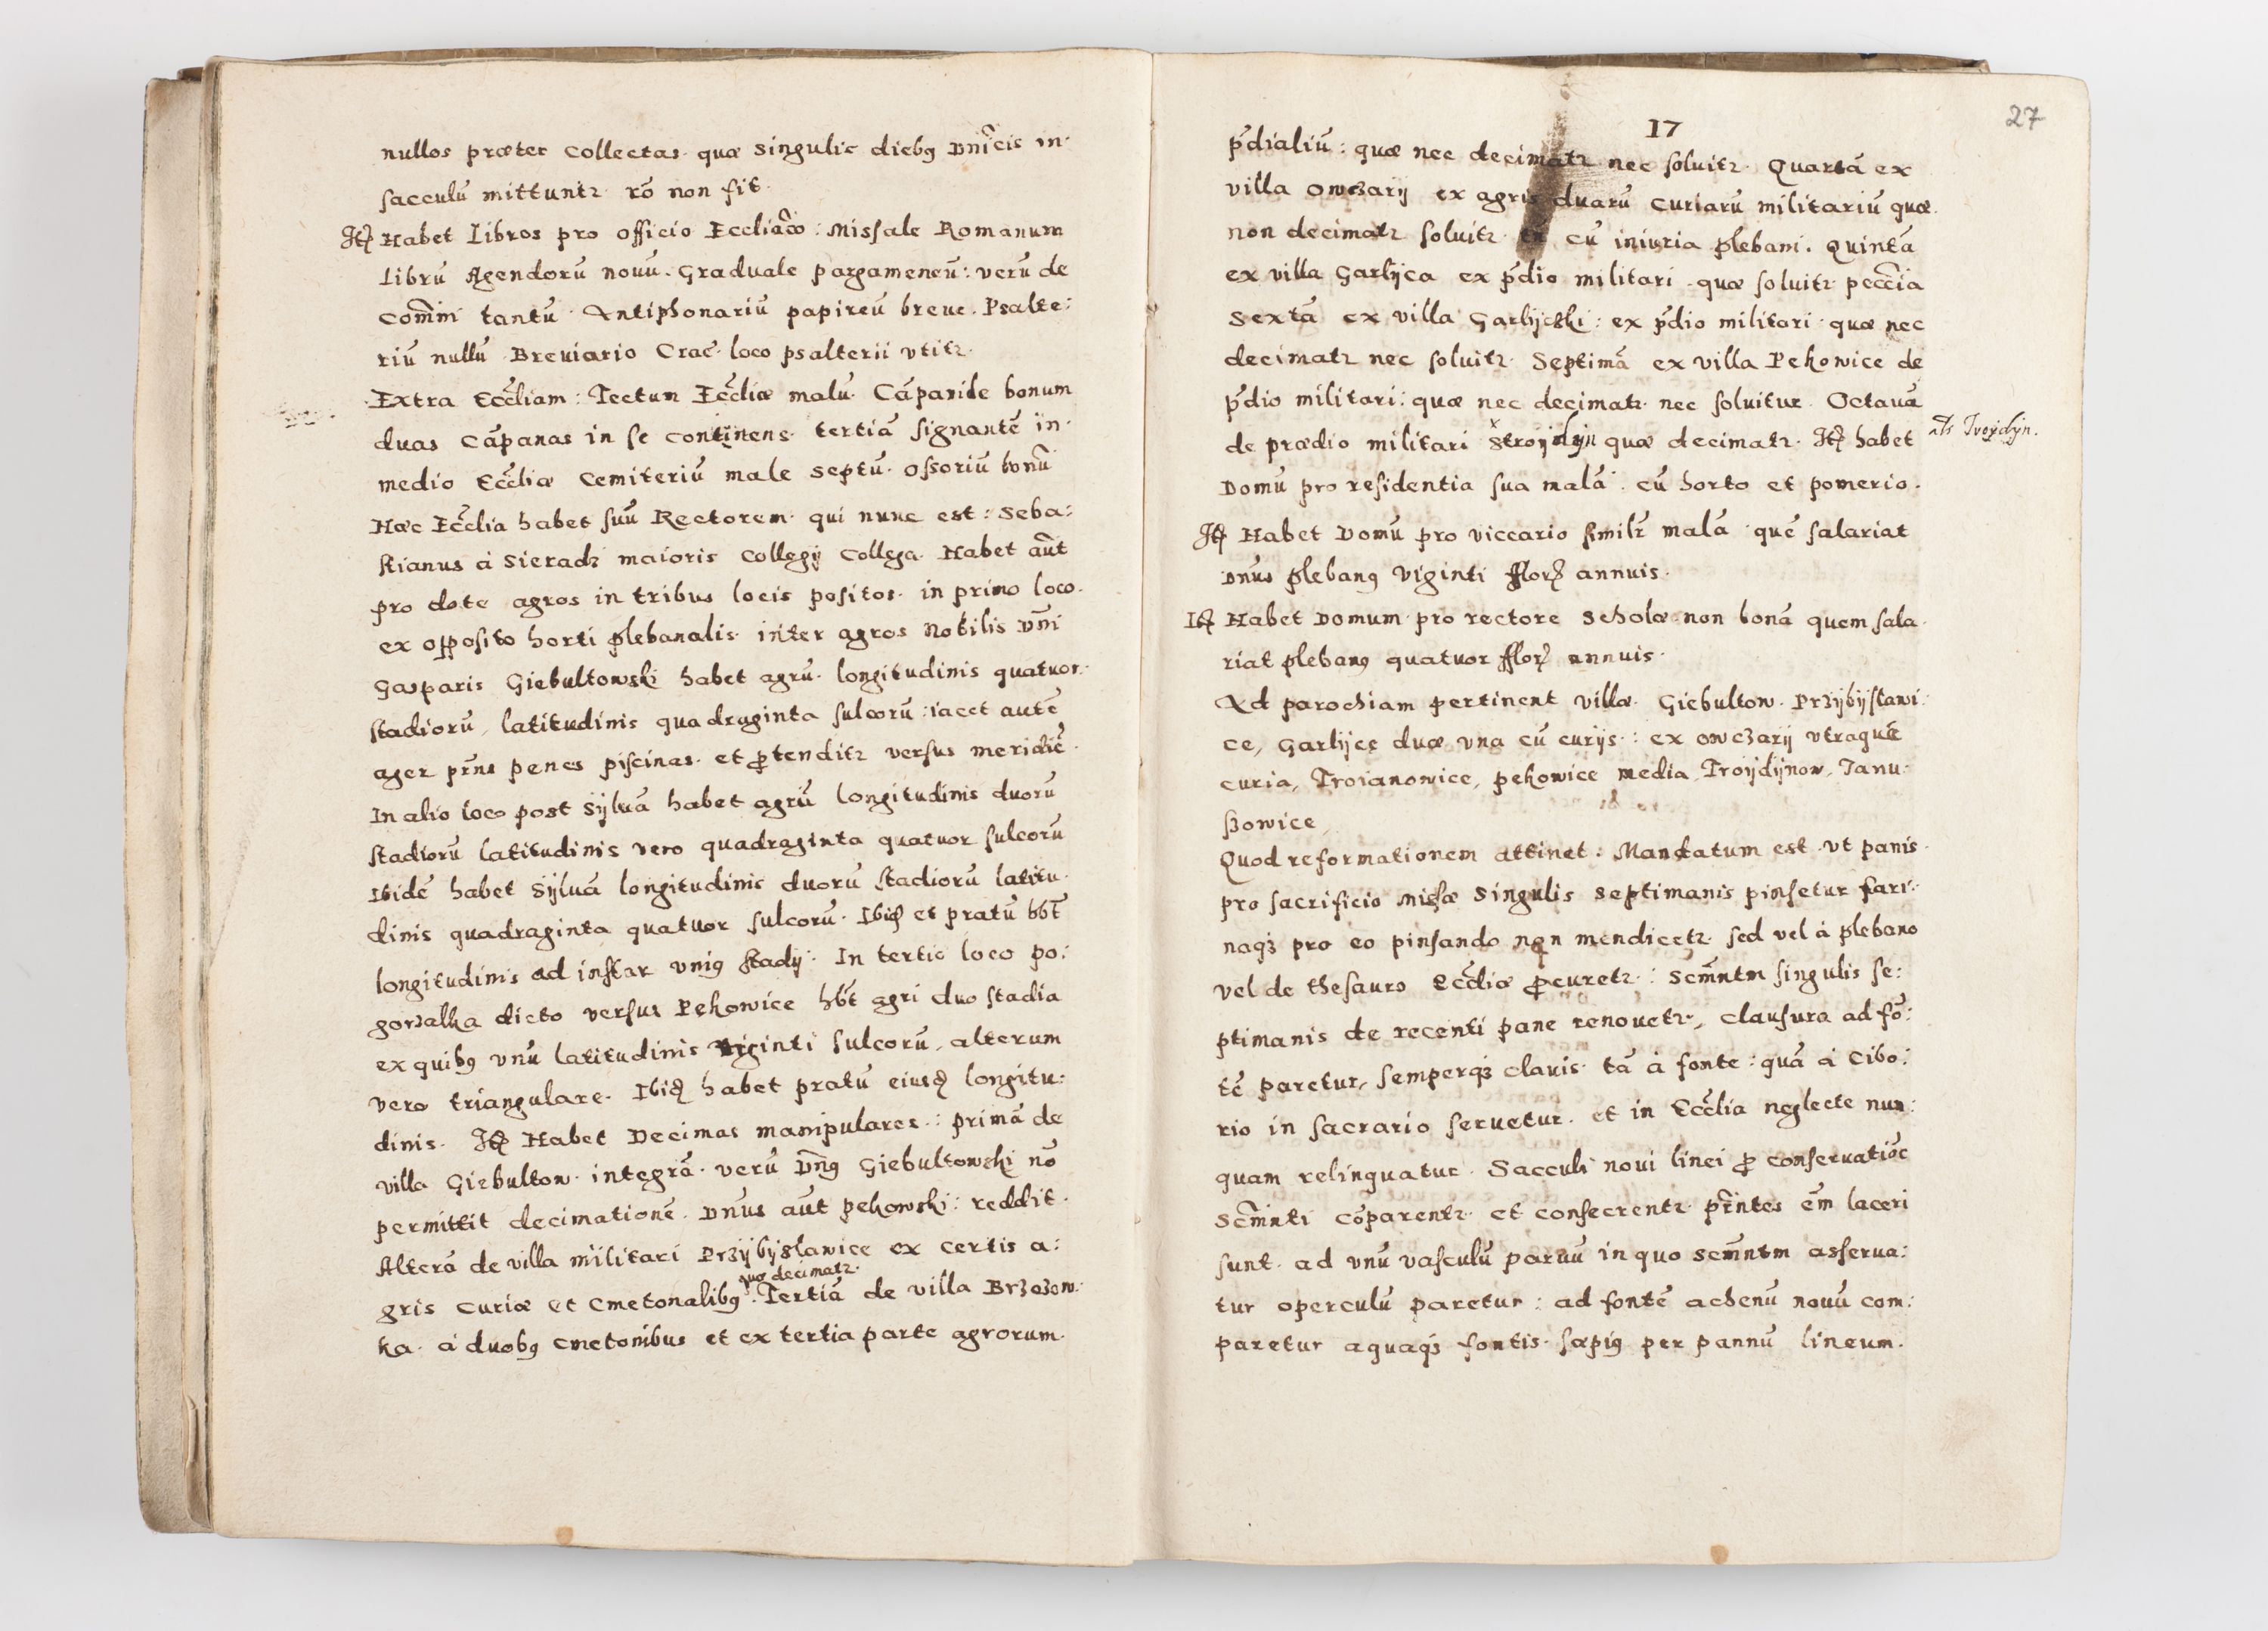 nullos præter collectas. quæ singulis diebꝯ Dnĩcis in
sacculũ mittuntr. rõ non fit.
Itꝫ Habet Libros pro officio Eccliãco: Missale Romanum
Librũ Agendorũ nouũ. Graduale pargameneũ: verũ de
Com̃ni tantũ. Antiphonariũ papireũ breue. Psalte:
riũ nullũ. Breuiario Crac̃. loco psalterii vtitr.
Extra Ecc̃liam: Tectum Ecc̃liæ malũ. Cãpanile bonum
duas cãpanas in se continens. tertiã signantẽ in
medio Ecc̃liæ Cemiteriũ male septũ. Ossoriũ bonũ
Hæc Ecc̃lia habet suũ Rectorem. qui nunc est: Seba:
stianus à Sieradz maioris collegij collega. Habet aũt
pro dote agros in tribus locis positos. in primo loco.
ex opposito horti plebanalis. inter agros Nobilis Dñi
Gasparis Giebultowski habet agrũ. longitudinis quatuor
stadiorũ, latitudinis quadraginta sulcorũ: iacet autẽ
ager pr̃ns penes piscinas. et ꝓtenditr versus meridiẽ.
In alio loco post syluã habet agrũ longitudinis duorũ
stadiorũ latitudinis vero quadraginta quatuor sulcorũ
Ibidẽ habet Syluã longitudinis duorũ stadiorũ latitu.
dinis quadraginta quatuor sulcorũ. Ibiꝫ et pratũ hb̃t
longitudinis ad instar vniꝯ stadij. In tertio loco po:
gorzalka dicto versus Pękowice hb̃t agri duo stadia
ex quibꝯ vnũ latitudinis viginti sulcorũ, alterum
vero triangulare. Ibiꝫ habet pratũ eiusꝫ longitu:
dinis. Itꝫ Habet Decimas manipulares: primã de
villa Giebultow. integrã. verũ Dñꝯ Giebultowski nõ
permittit decimationẽ. Dñus aũt Pekowski: reddit.
Alterã de villa militari Przÿbÿslawice ex certis a:
quæ decimatr.
gris curiæ et cmetonalibꝯ. Tertiã de villa Brzozow.
ka. à duobꝯ cmetonibus et ex tertia parte agrorum.
17
27
p̃dialiũ: quæ nec decimatr nec soluitr. Quartã ex
villa Owczarÿ ex agris duarũ curiarũ militariũ quæ
non decimatr soluitr cũ iniuria plebani. Quintã
ex villa Garlÿca ex p̃dio militari quæ soluitr pecc̃ia
Sextã ex villa Garlÿczki: ex p̃dio militari quæ nec
decimatr nec soluitr. Septimã ex villa Pekowice de
p̃dio militari: quæ nec decimatr. nec soluitur. Octauã
de prædio militari Stroÿdÿn quæ decimatr. Itꝫ habet
als Troÿdÿn.
Domũ pro residentia sua malã. cũ horto et pomerio.
Itꝫ Habet Domũ pro viccario similr malã quẽ salariat
Dñus plebanꝯ viginti fflorꝫ annuis.
Itꝫ Habet Domum pro rectore scholæ non bonã quem sala
riat plebanꝯ quatuor fflorꝫ annuis.
Ad parochiam pertinent villæ. Giebultow. Przÿbÿslawi:
ce, Garlÿce duæ vna cũ curijs: ex owczarÿ vtraquẽ
curia, Troianowice, pekowice media, Troÿdÿnow, Janu:
szowice,
Quod reformationem attinet: Mandatum est vt panis
pro sacrificio missæ singulis septimanis pinsetur fari:
naqꝫ pro eo pinsando non mendicetr. sed vel à plebano
vel de thesauro Ecc̃liæ ꝓcuretr: Scm̃ntm singulis se:
ptimanis de recenti pane renouetr, clausura ad fõ:
tẽ paretur, semperqꝫ clauis tã à fonte: quã à Cibo:
rio in sacrario seruetur. et in Ecc̃lia neglecte nun:
quam relinquatur. Sacculi noui linei ꝓ conseruatiõe
Scm̃nti cõparentr. et consecrentr. pr̃ntes em̃ laceri
sunt. ad vnũ vasculũ paruũ in quo scm̃ntm asserua:
tur operculũ paretur: ad fontẽ achenũ nouũ com:
paretur aquaqꝫ fontis. sæpiꝯ per pannũ lineum.